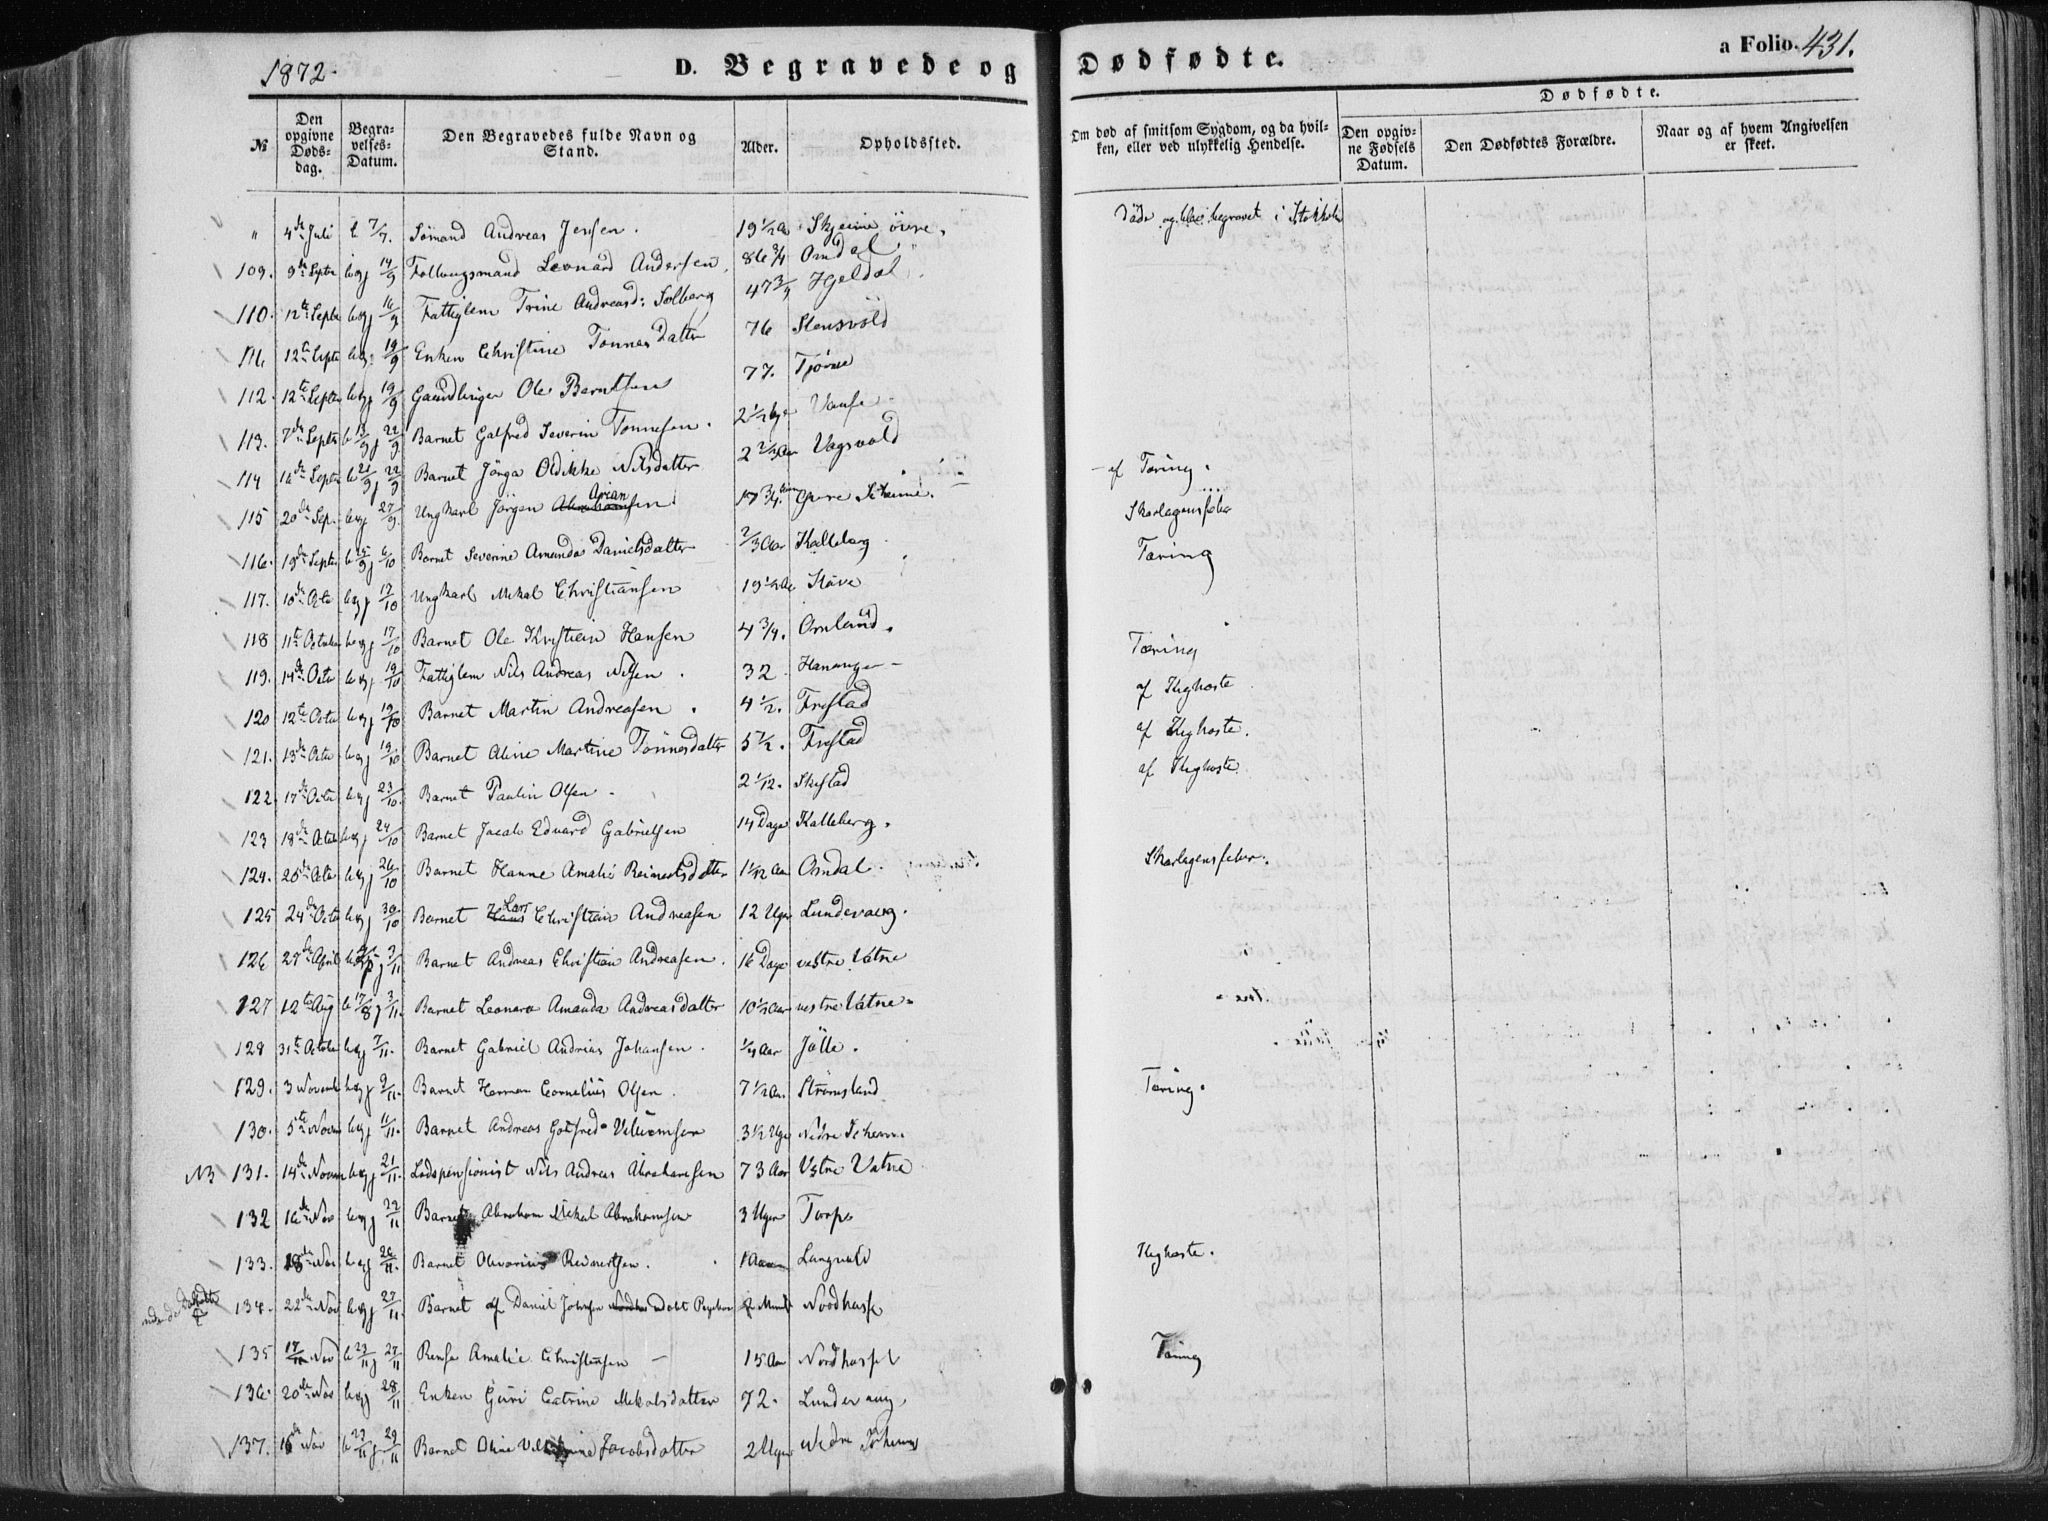 1872.
D. Begravede og Dødfødte.
a Folio. 431.
№
Den opgivne Døds-dag.
Begra-velses-Datum.
Den Begravedes fulde Navn og Stand.
Alder.
Opholdssted.
Om død af smitsom Sygdom, og da hvil-ken, eller ved ulykkelig Hendelse.
Dødfødte.
Den opgiv-ne Fødsels Datum.
Den Dødfødtes Forældre.
Naar og af hvem Angivelsen er skeet.
" 4de Juli b 7/7. Sømand Andreas Jensen. 19 1/2 Skjeime övre. begravet i
109. 9de Septr begj 14/9 Leonard Andersen. 86 3/4 Omdal
110. 12te Septr begj 16/9 Fattiglem Trine Andreasd: Solberg 47 3/4 Hjeldal
111. 12te Septr begj 19/9 Enken Christine Tønnesdatter 76 Stensvold
112. 12te Septr begj 19/9 Ole Berntsen 77. Tjørve
113. 7de Septr b 13/9 j 22/9 Barnet Galfred Severin Tønnesen. 2 1/2 Vanse
114 16de Septr b 21/9 j 22/9 Barnet Jörga Oldikke Nilsdatter 2 2/3 Aar Vagsvold - af Tæring.
115 20de Sep. begj 27/9 Ungkarl Jörgen Arian 17 3/4 Övere Scheime. Skarlagensfeber
116. 19de Septr b 25/9 j 6/10 Barnet Severine Amanda Danielsdatter 2/3 Aar Kalleberg Tæring
117. 10de Octr begj 17/10 Ungkarl Mekal Christiansen 19 1/2 Aar Stave
118 11te October begj 17/10 Barnet Ole Kristian Hansen 4 3/4. Omland. Tæring
119. 14de Octr begj 19/10 Fattiglem Nils Andreas Nilsen. 32 Hananger - af Kighoste
120 12te Octr begj 19/10 Barnet Martin Andreasen. 4 1/2. Frestad af Kighoste.
121. 13de Octr begj 19/10 Barnet Aline Martine Tönnesdatter 5 1/2. Frestad af Kighoste
122. 17de Octr begj 23/10. Barnet Paulin Olsen. 2 1/12. Skeistad
123 18de Octob begj 24/10 Barnet Jacob Edvard Gabrielsen 14 Dage Kalleberg.
124. 20de Octr begj 26/10 Barnet Hanne Amalie Reinertsdatter 1 1/12 Aar Omdal. Skarlagensfeber.
125 24de Octr begj 30/10 Barnet Lars Christian Andreasen 12 Uger Lundevaag.
126 27de April j 3/11 Barnet Andreas Christian Andreasen. 16 Dage vestre Vatne
127 12te Aug b 17/8 j 3/11. Barnet Leonara Amanda Andreasdatter 10 1/2 Aar vestre Vatne.
128 31te Octobr begj 7/11. Barnet Gabriel Andrias Johansen. 1/4 Aar Jölle.
129. 3 Novemb begj 9/11. Barnet Herman Cornelius Olsen. 7 1/2 Aar. Strömsland Tæring.
130. 5te Novem begj 11/11. Barnet Andreas Gotfred Villiemsen 3 1/2 Uge Nedre Scheim.
NB 131. 14de Novem begj 21/11. Lodspensionist Nils Andreas Abrahamsen 73 Aar Vestre Vatne
132 16de Nov begj 22/11 Barnet Abraham Mekal Abrahamsen 3 Uger Torp
133. 18de Nov begj 26/11. Barnet Olevarius Reinertsen. 1 Aar Langvold Kighoste.
134. 22de Nov begj 27/11 Barnet af Daniel Johnsen 2 Mined Nordhassel
135 17/11 Nov b 23/11 j 27/11 Amalie Christensen - 15 Aar Nordhassel Tæring
136. 20de Nov begj 28/11 Enken Guri Catrine Mekalsdatter 72. Lundevaag
137. 16de Nov b 23/11 j 29/11 Barnet Oline Jacobsdatter 2 Uger Nedre Scheime